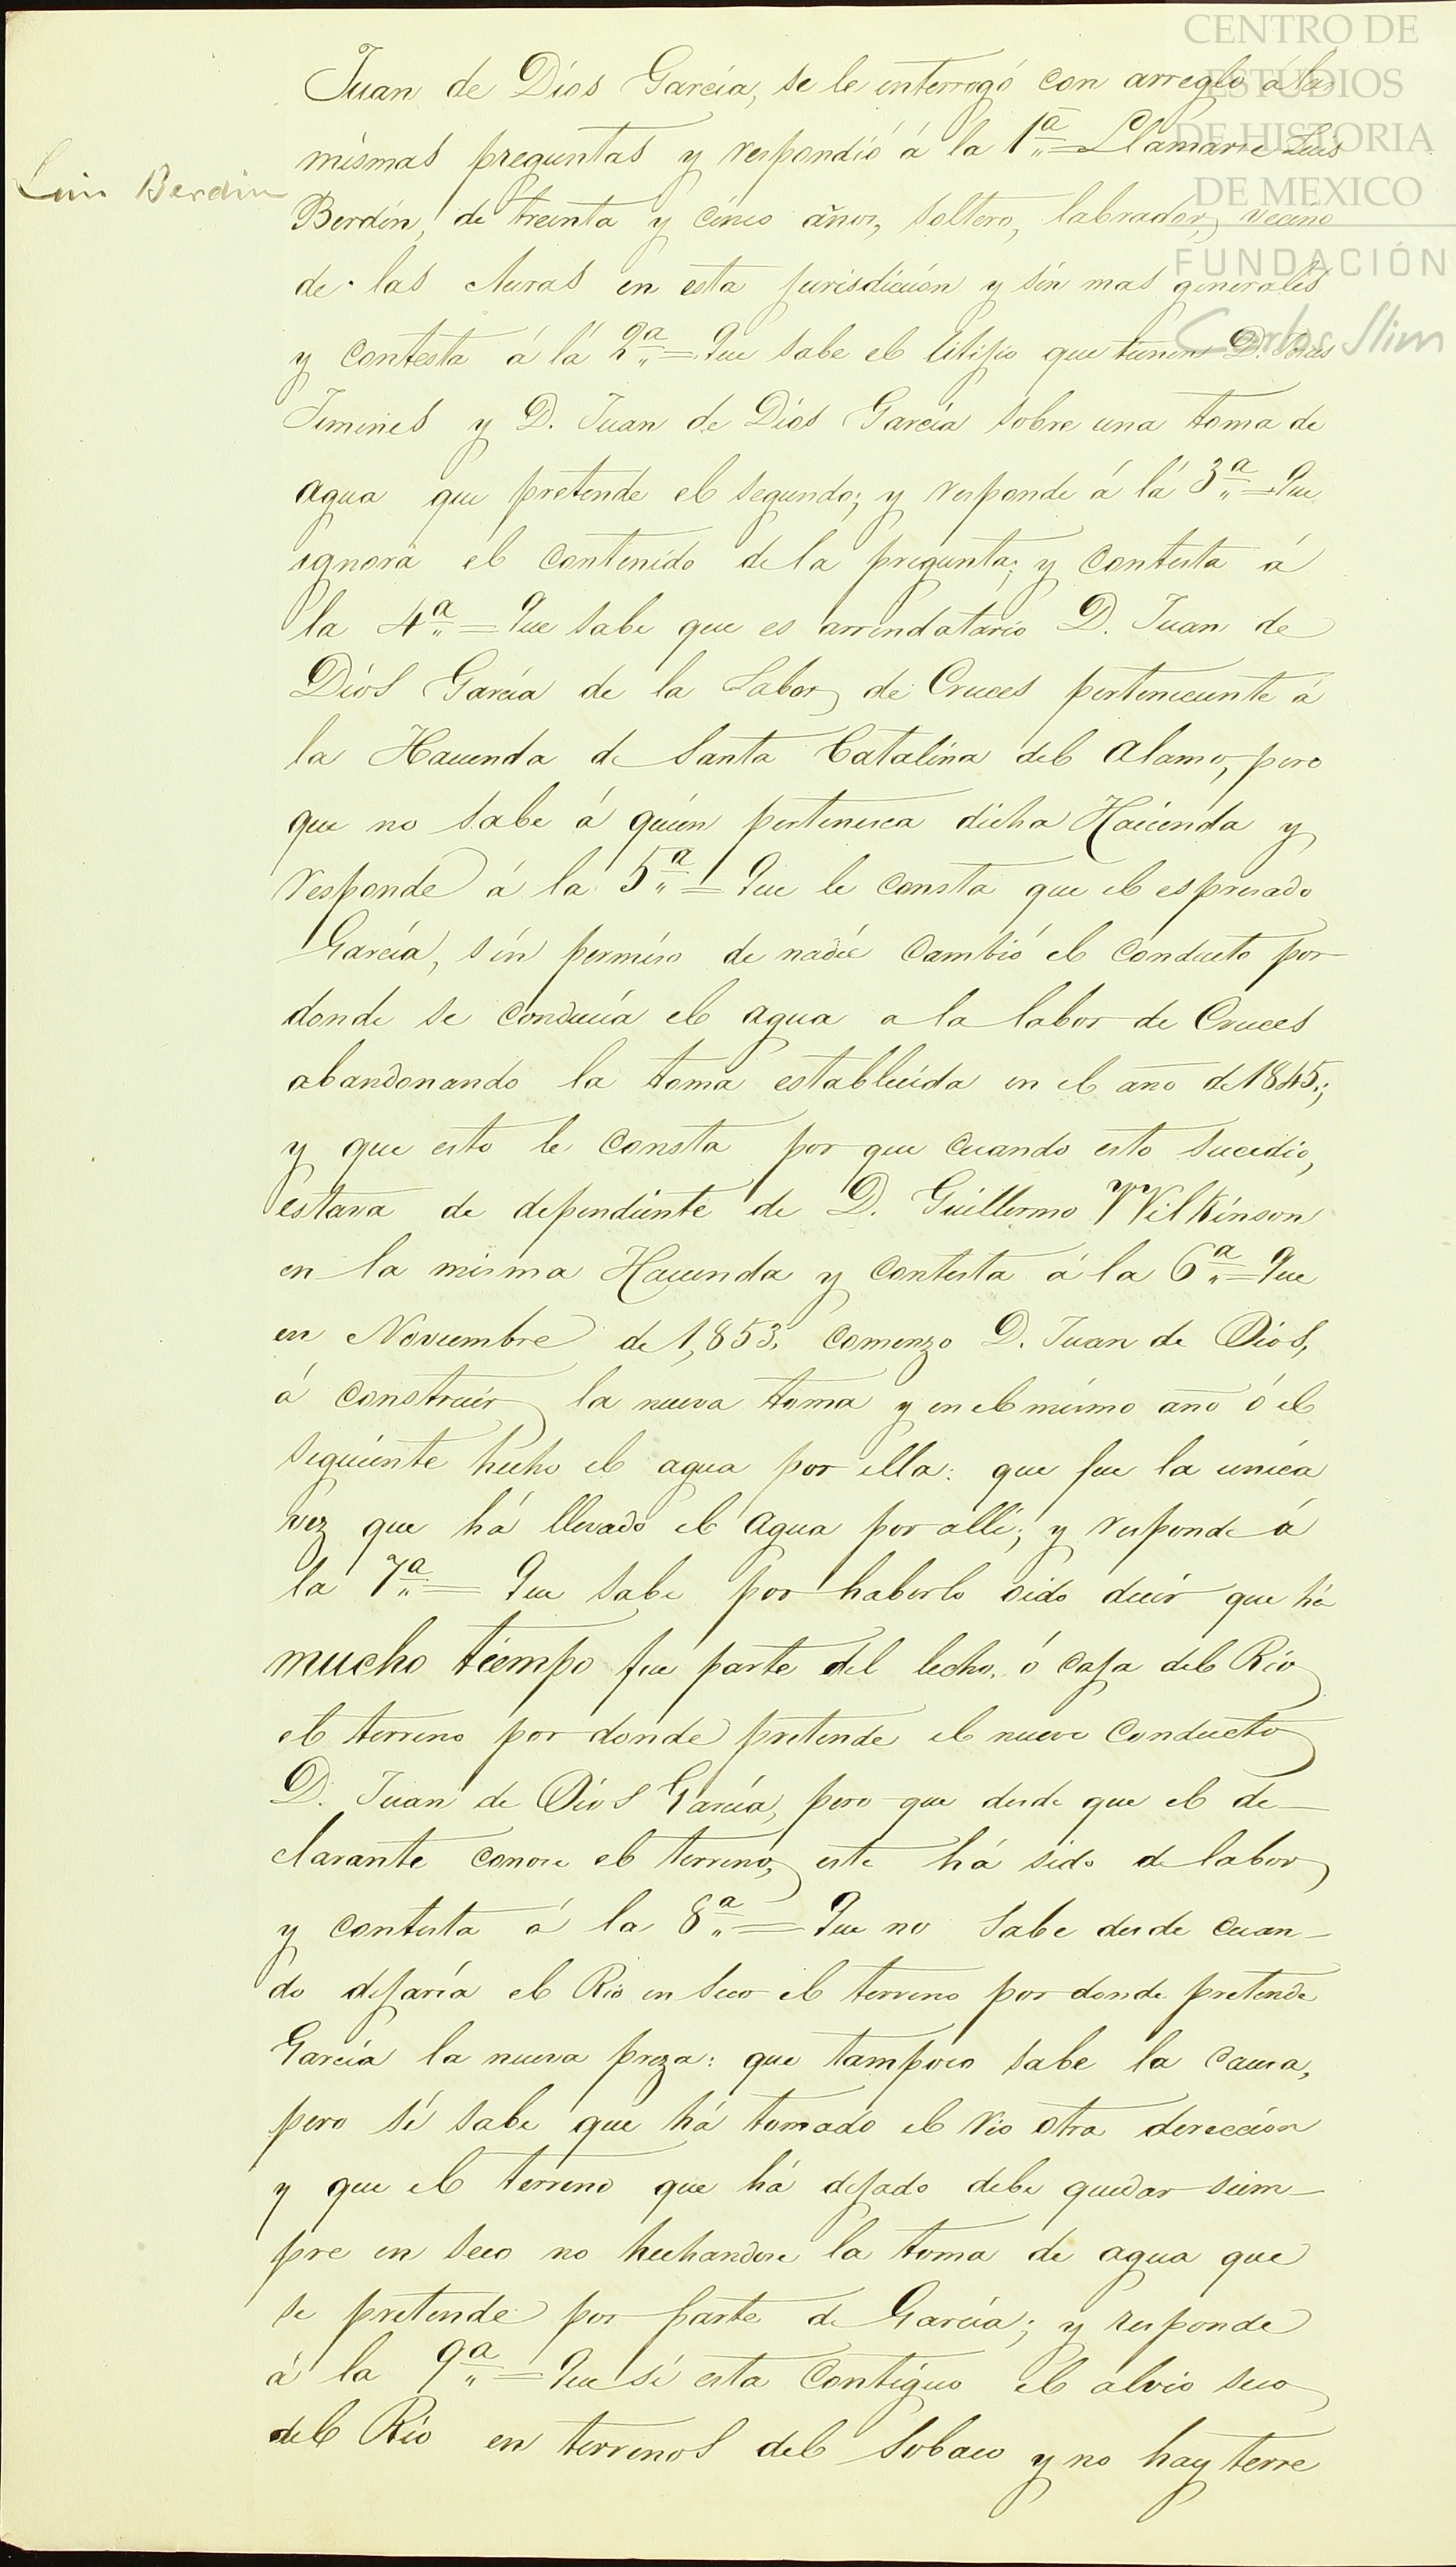 CENTRO DE
ESTUDIOS
DE HISTORIA
DE MEXICO
FUNDACIÓN
Carlos Slim
Juan de Dios García, se le interrogó con arreglo á las
mismas preguntas y respondió á la 1ª = Llamarse Luis
Luis Berdin
Berdín, de treinta y cinco años, soltero, labrador, vecino
de las Auras en esta jurisdicción y sin mas generales
y contesta á la 2ª = Que sabe el litijio que tienen D. Blas
Jimines y D. Juan de Dios García sobre una toma de
agua que pretende el segundo; y responde á la 3ª = Que
ignora el contenido de la pregunta; y contesta á
la 4ª = Que sabe que es arrendatario D. Juan de
Dios García de la Labor de Cruces perteneciente á
la Hacienda de Santa Catalina del Alamo, pero
que no sabe á quien pertenesca dicha Hacienda y
responde á la 5ª = Que le consta que el espresado
García, sin permiso de nadie cambió el conducto por
donde se conducía el agua a la labor de Cruces
abandonando la toma establecida en el año de 1845;
y que esto le consta por que cuando esto sucedio,
estava de dependiente de D. Guillermo Wilkinson
en la misma Hacienda y contesta á la 6ª = Que
en Noviembre de 1,853, comenzo D. Juan de Dios,
á construir la nueva toma y en el mismo año ó el
siguiente hecho el agua por ella: que fue la unica
vez que há llevado el agua por allí; y responde á
la 7ª = Que sabe por haberlo oido decir que há
mucho tiempo fue parte del lecho, ó caja del Rio
el terreno por donde pretende el nuevo conducto
D. Juan de Dios García, pero que desde que el de-
clarante conose el terreno, este há sido de labor
y contesta á la 8ª = Que no sabe desde cuan-
do dejaría el Rio en seco el terreno por donde pretende
García la nueva preza: que tampoco sabe la causa,
pero sí sabe que há tomado el rio otra dirección
y que el terreno que há dejado debe quedar siem-
pre en seco no hechandose la toma de agua que
se pretende por parte de García; y responde
á la 9ª = Que si esta contiguo el alvio seco
del Rio en terrenos del Sobaco y no hay terre